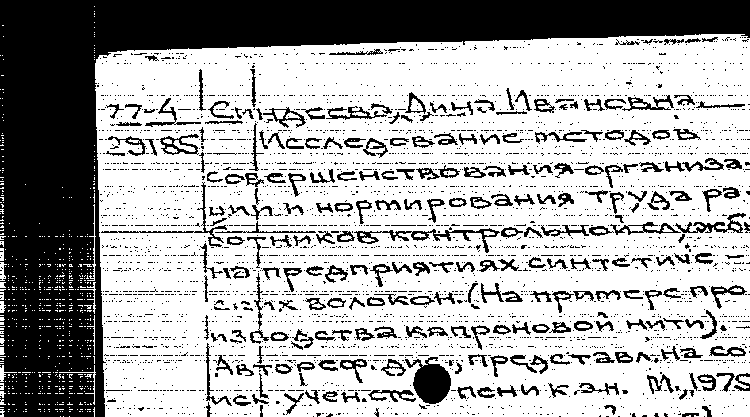 77-4 Синдеева, Дина Ивановна.
29185 Исследование методов
совершенствования организа-
ции и нормирования труда ра-
ботников контрольной службы
на предприятиях синтетиче-
ских волокон. (На примере про
изводства капроновой нити).
Автореф. дис., представл. на со
иск. учен. сте пени к.э.н. М., 1975